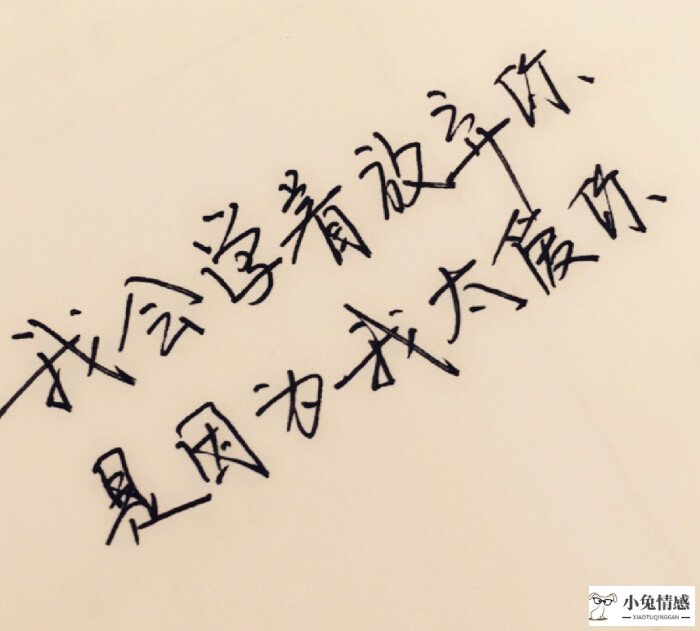 我会学着放弃你
是因为我太爱你
小兔情感
XIAOTUQINGGAN